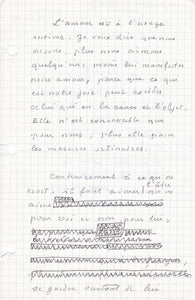 L'amour est à l'usage
intime. Je veux dire que nous
devons, plus nous aimons
quelqu'un, moins lui manifester
notre amour, parce que ce qui
est notre joie peut excéder
celui qui en la cause et l'objet.
Elle n'est concevable que
pour nous ; plus elle passe
les mesures ordinaires.
Contrairement à ce qu'on
croit, il faut aimer
l'être
pour soi et non pour lui,
se garder surtout de lui